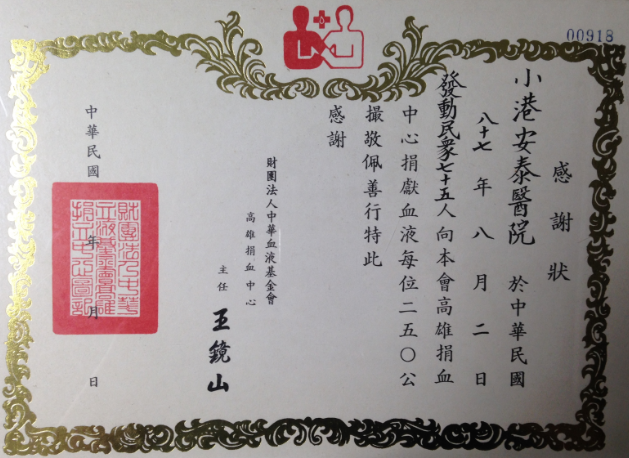 00918
感謝狀
小港安泰醫院 於中華民國
八十七年八月二日
發動民衆七十五人向本會高雄捐血
中心捐獻血液每位二五〇公
撮敬佩善行特此
感謝
財團法人中華血液基金會
高雄捐血中心
主任 王鏡山
中華民國 年 月 日